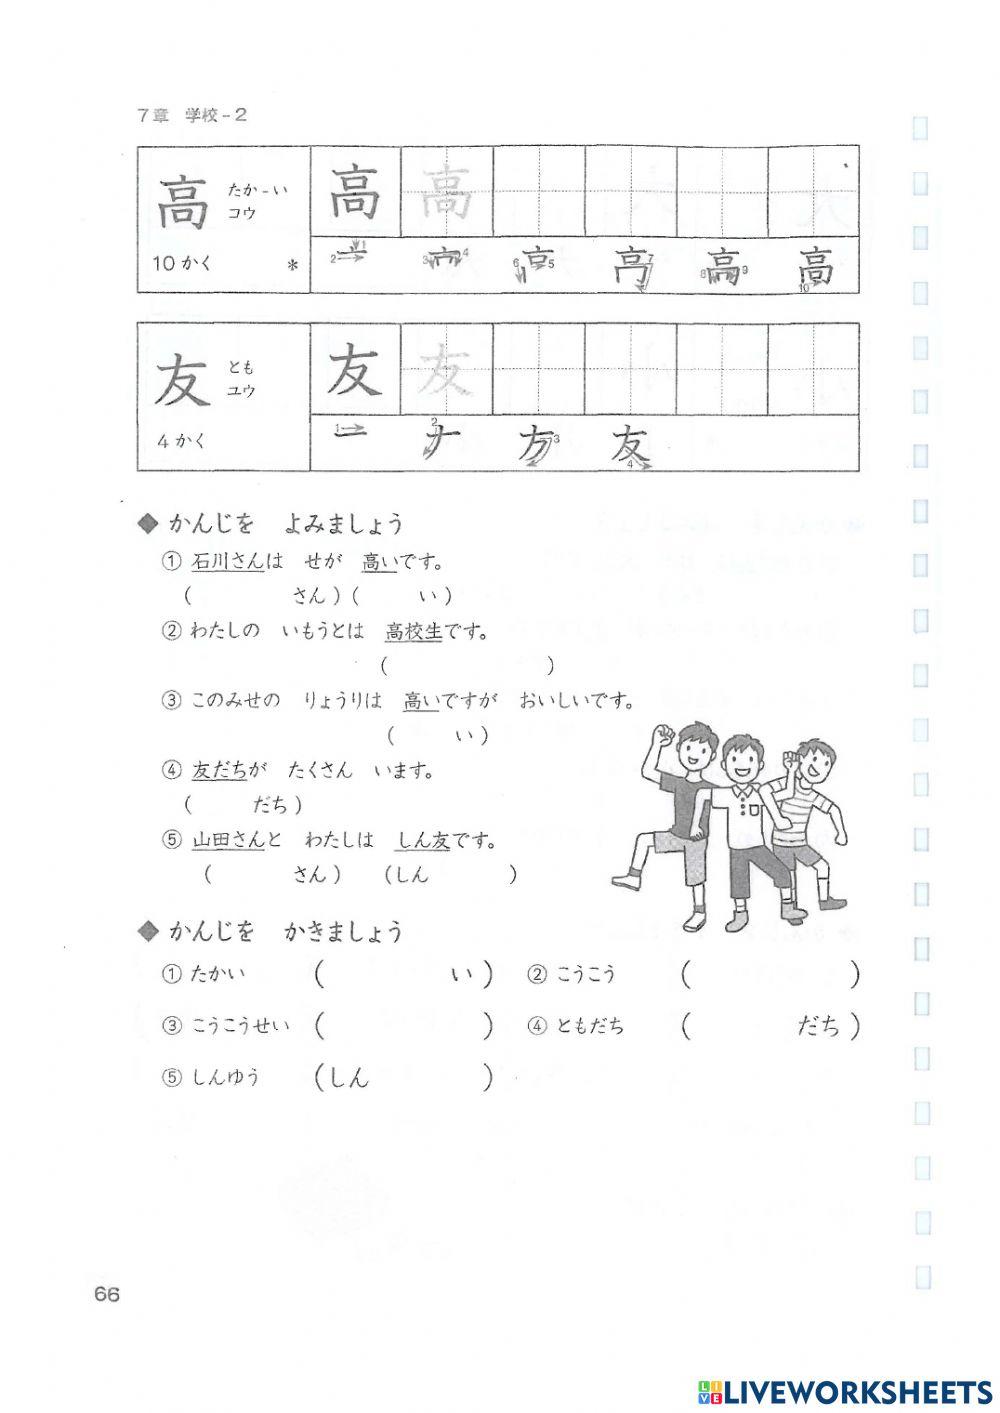 7章 学校-2
高 たか-い 高 高
コウ
10かく *
2 1 3 4 6 5 7 8 9 10
友 とも 友 友
ユウ
4かく
1 2 3 4
◆ かんじを よみましょう
① 石川さんは せが 高いです。
( さん)( い)
② わたしの いもうとは 高校生です。
( )
③ このみせの りょうりは 高いですが おいしいです。
( い)
④ 友だちが たくさん います。
( だち)
⑤ 山田さんと わたしは しん友です。
( さん) (しん )
◆ かんじを かきましょう
① たかい ( い) ② こうこう ( )
③ こうこうせい ( ) ④ ともだち ( だち)
⑤ しんゆう (しん )
66
LIVE LIVEWORKSHEETS